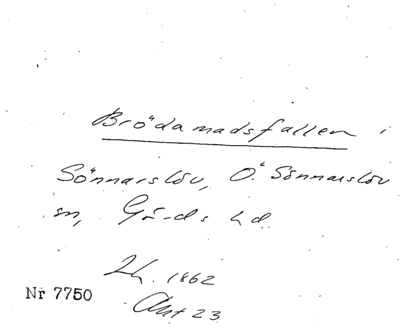 Brödamadsfallen i
Sönnarslöv, Ö. Sönnarslöv
sn, Gärds hd.
Lh. 1862
Nr 7750
Akt 23